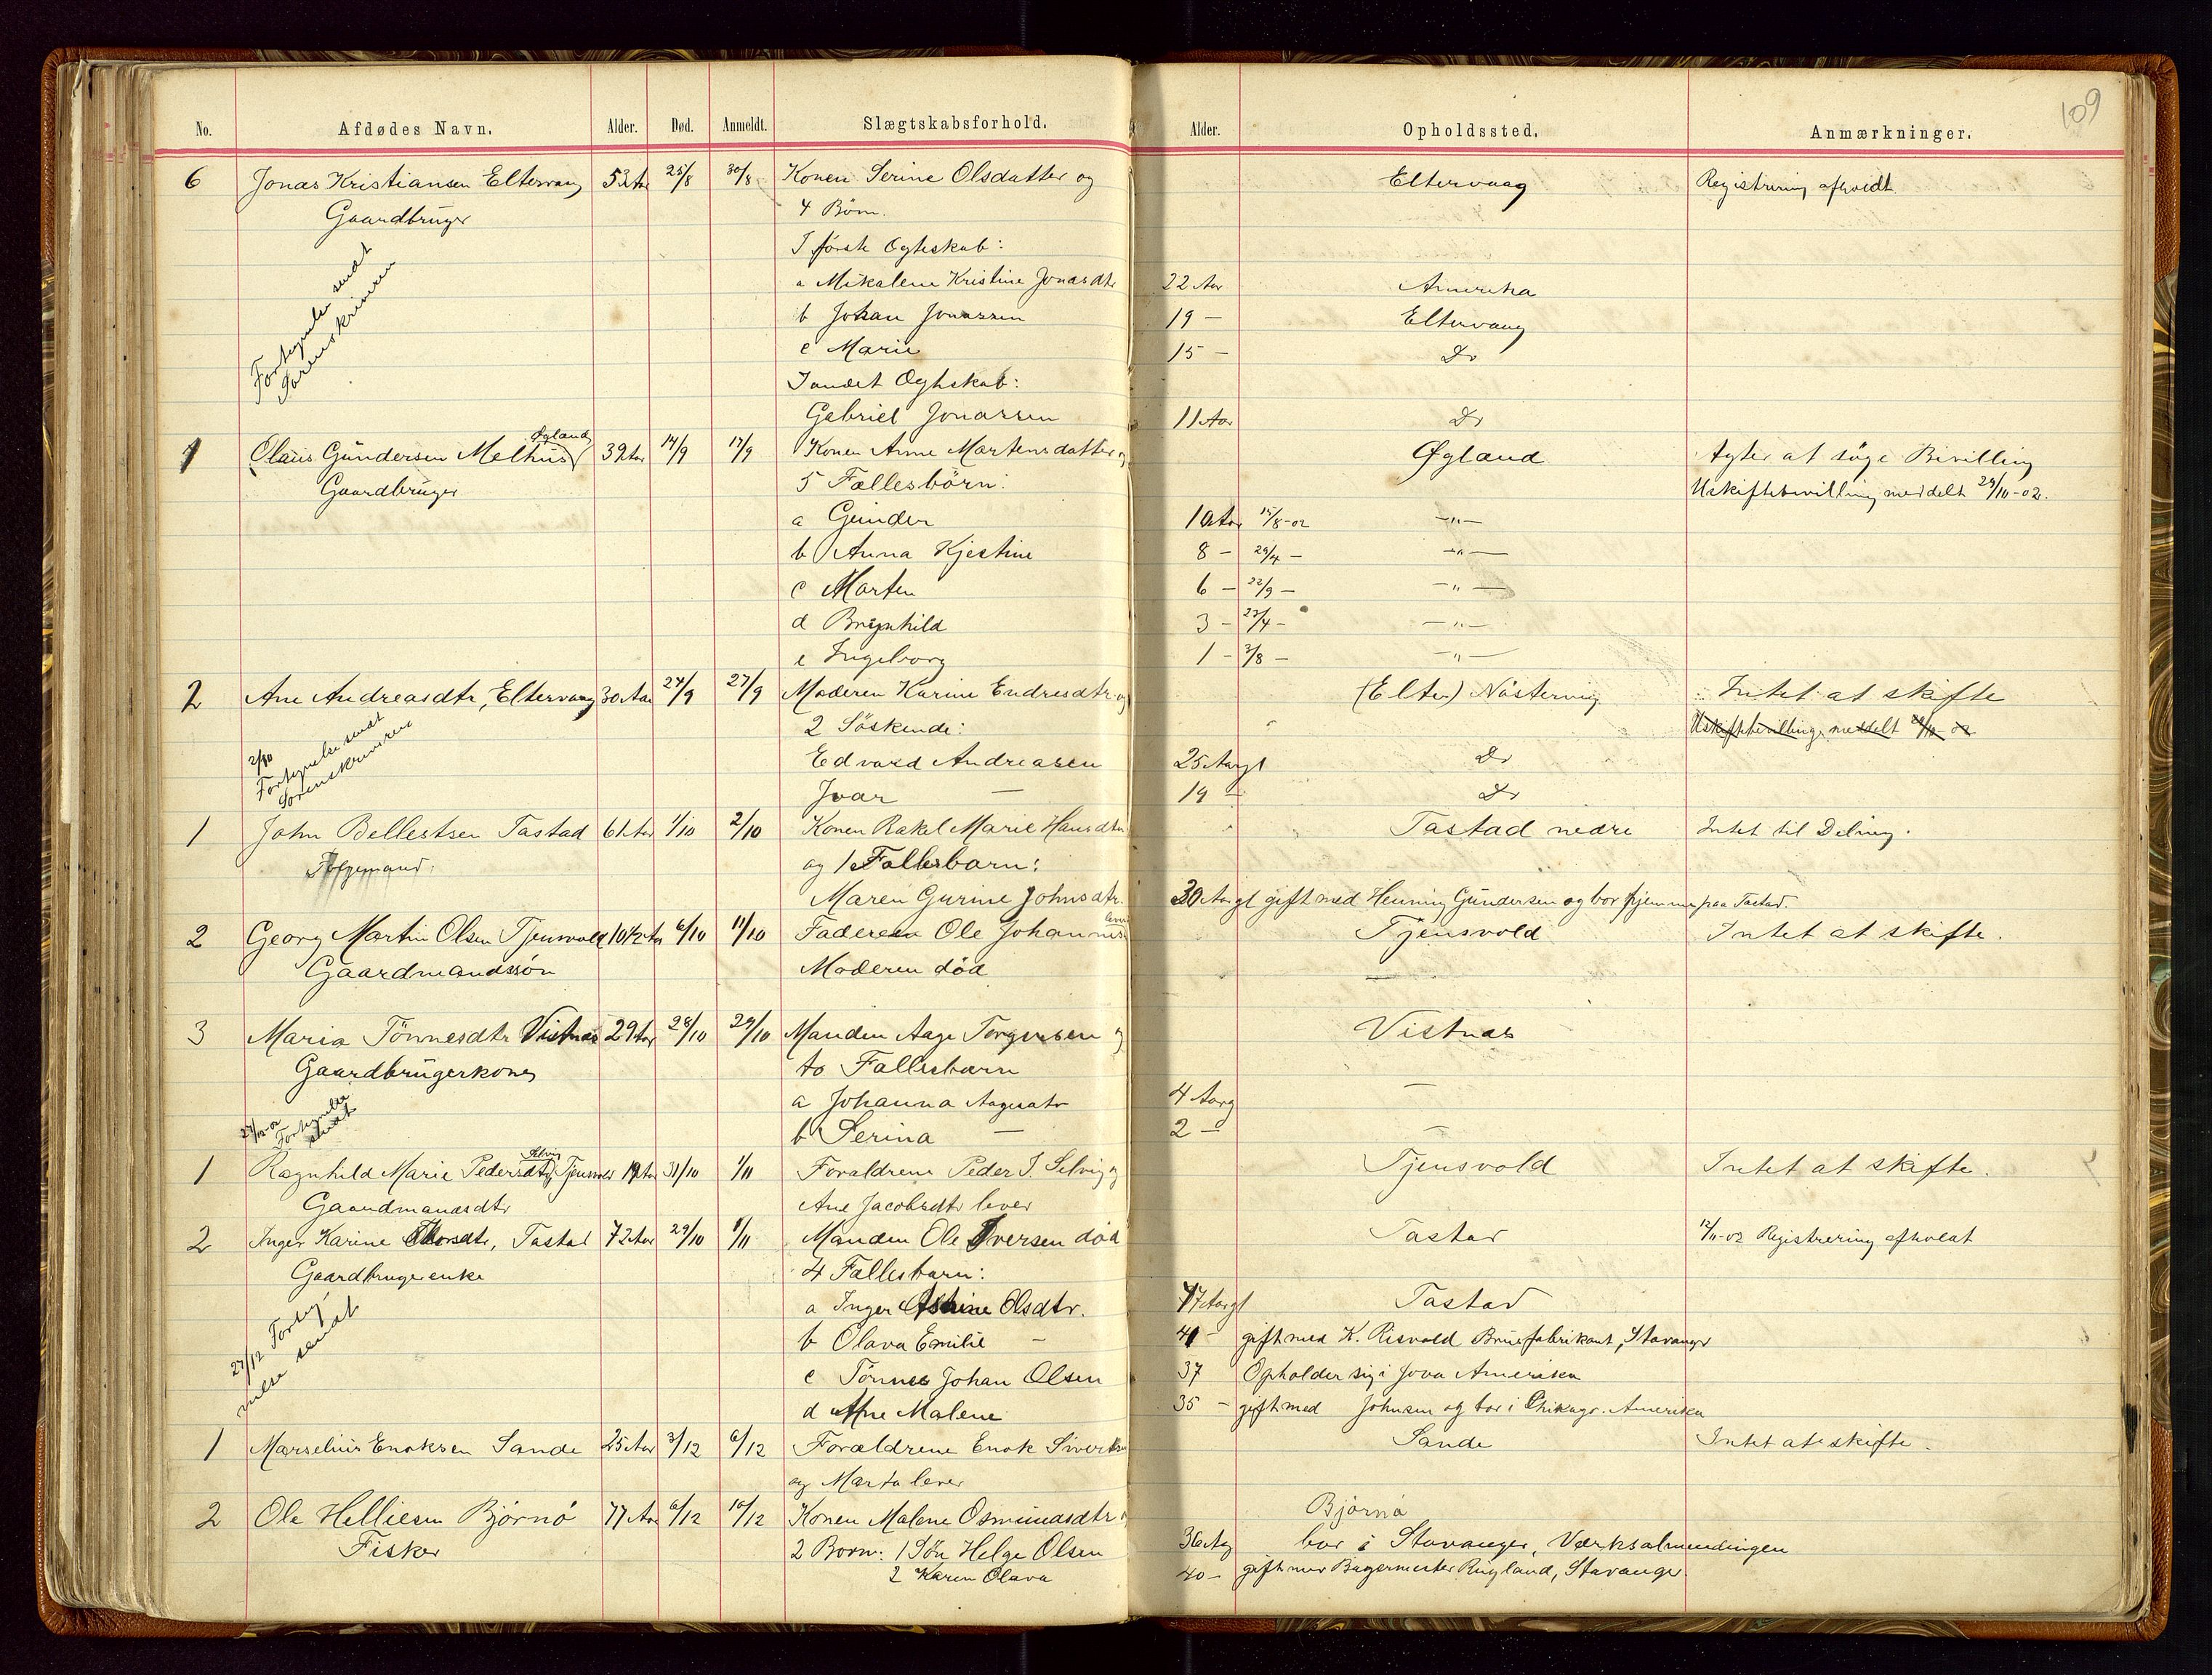 109
No. Afdødes Navn. Alder. Død. Anmeldt. Slægtskabsforhold. Alder. Opholdssted. Anmærkninger.
6 Jonas Kristiansen Eltervaag 53 Aar 25/8 30/8 Konen Serine Olsdatter og Eltervaag Registrering afholdt
Gaardbruger 4 Börn.
I første Ægteskab:
a Mikalene Kristine Jonasdtr 22 Aar Amerika
b Johan Jonassen 19 — Eltervaag
c Marie 15 — Do
I andet Ægteskab:
Gabriel Jonassen 11 Aar Do
Fortegnelse sendt
Sorenskriveren
1 Olaus Gundersen Melhus Øgland 39 Aar 14/9 17/9 Konen Anne Martensdatter og Øgland Agter at søge Bevilling
Gaardbruger 5 Fællesbörn: Uskiftebevilling meddelt 29/10-02.
a Gunder 10 Aar 15/8-02 —"—
b Anna Kjestine 8 — 29/4 — —"—
c Marten 6 — 22/9 — —"—
d Brynhild 3 — 23/4 — —"—
e Ingeborg 1 — 3/8 — —"—
2 Ane Andreasdtr, Eltervaag 30 Aar 24/9 27/9 Moderen Karine Endresdtr og (Elter) Nöstervig Intet at skifte
2 Söskende: Uskiftebevilling meddelt
Edvard Andreasen 25 Aargl Do
Ivar — 19 — Do
2/10
Fortegnelse sendt
Sorenskriveren
1 John Bellestsen Tastad 61 Aar 1/10 2/10 Konen Rakel Marie Hansdtr Tastad nedre Intet til Deling.
Følgemand. og 1 Fællesbarn:
Maren Gurine Johnsdtr. 30 Aargl gift med Henning Gundersen og bor hjemme paa Tastad.
2 Georg Martin Olsen Tjensvold 10 1/2 Aar 6/10 11/10 Faderen Ole Johannesen lever Tjensvold Intet at skifte.
Gaardmandssön Moderen död —
3 Maria Tönnesdtr Vistnæs 29 Aar 28/10 29/10 Manden Aage Torgersen og Vistnæs
Gaardbrugerkone to Fællesbarn
a Johanna Aagesdtr 4 Aarg —
b Serina — 2 — —
Fortegnelse
sendt
1 Ragnhild Marie Pedersdtr Selvig Tjensvold 19 Aar 31/10 1/11 Foraldrene Peder J. Selvig og Tjensvold Intet at skifte.
Gaardmandsdtr Ane Jacobsdtr lever
2 Inger Karine Thorsdtr, Tastad 72 Aar 29/10 8/11 Manden Ole Iversen död Tastad 12/11-02 Registrering afholdt
Gaardbrugerenke 4 Fællesbarn:
a Inger Olsdtr. 47 Aargl Tastad
b Olava Emilie — 41 — gift med K. Risvold Brusfabrikant, Stavanger
c Tönnes Johan Olsen 37 Opholder sig i Jova Amerika
d Ane Malene 35 — gift med Johnsen og bor i Chikago. Amerika
27/12 Forteg
nelse sendt
1 Marselius Enoksen Sande 25 Aar 3/12 6/12 Forældrene Enok Sivertsen Sande Intet at skifte.
og Marta lever
2 Ole Helliesen Bjørnø 77 Aar 6/12 10/12 Konen Malene Osmundsdtr Bjørnø
Fisker 2 Børn: 1 Søn Helge Olsen 36 Aarg bor i Stavanger, Værksalmendingen
2 Karen Olava 40 — gift med Bagermester Ringland, Stavanger.